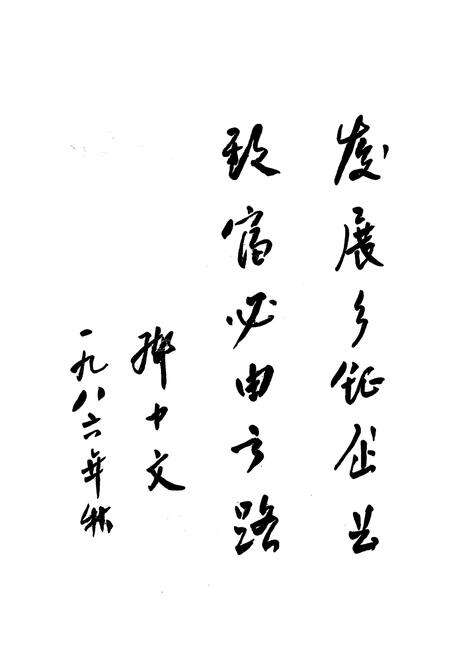 发展乡镇企业
致富必由之路
中文
一九八六年秋